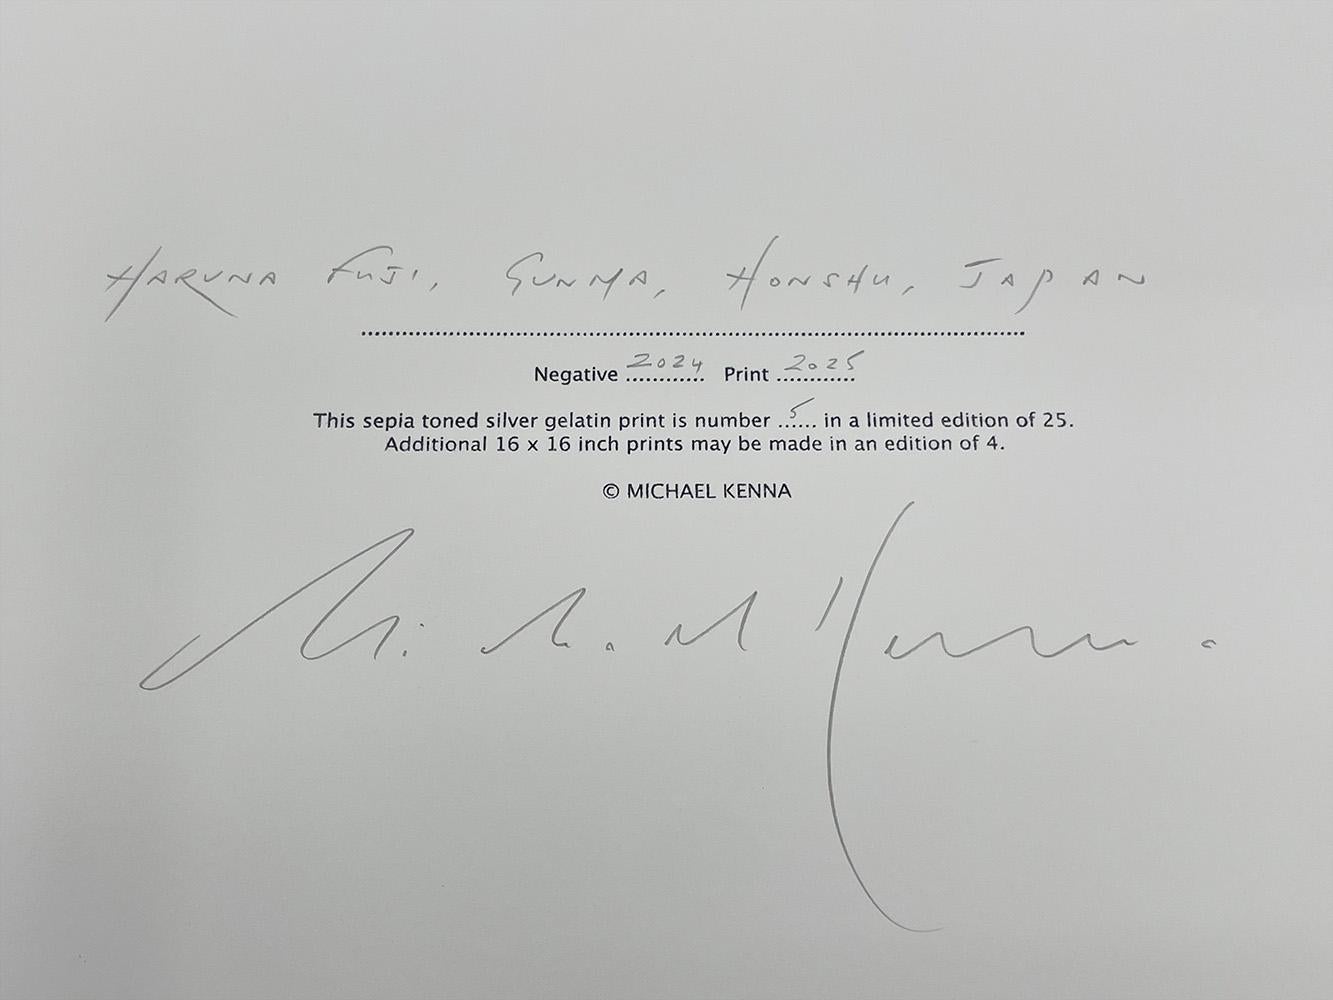 HARUNA FUJI, GUNMA, HONSHU, JAPAN
Negative 2024 Print 2025
This sepia toned silver gelatin print is number 5 in a limited edition of 25.
Additional 16 x 16 inch prints may be made in an edition of 4.
© MICHAEL KENNA
Michael Kenna